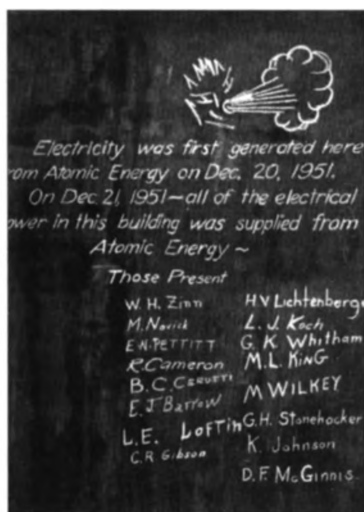 Electricity was first generated here
rom Atomic Energy on Dec. 20, 1951.
On Dec. 21, 1951~all of the electrical
ower in this building was supplied from
Atomic Energy ~
Those Present
W. H. Zinn
M. Novick
E. N. PETTITT
R. Cameron
B. C. CERUTTI
E. J. Barrow
L. E. LOFTIN
C. R. Gibson
H V Lichtenberge
L. J. Koch
G. K. Whitham
M. L. KING
M WILKEY
G. H. Stonehocker
K. Johnson
D. F. McGinnis